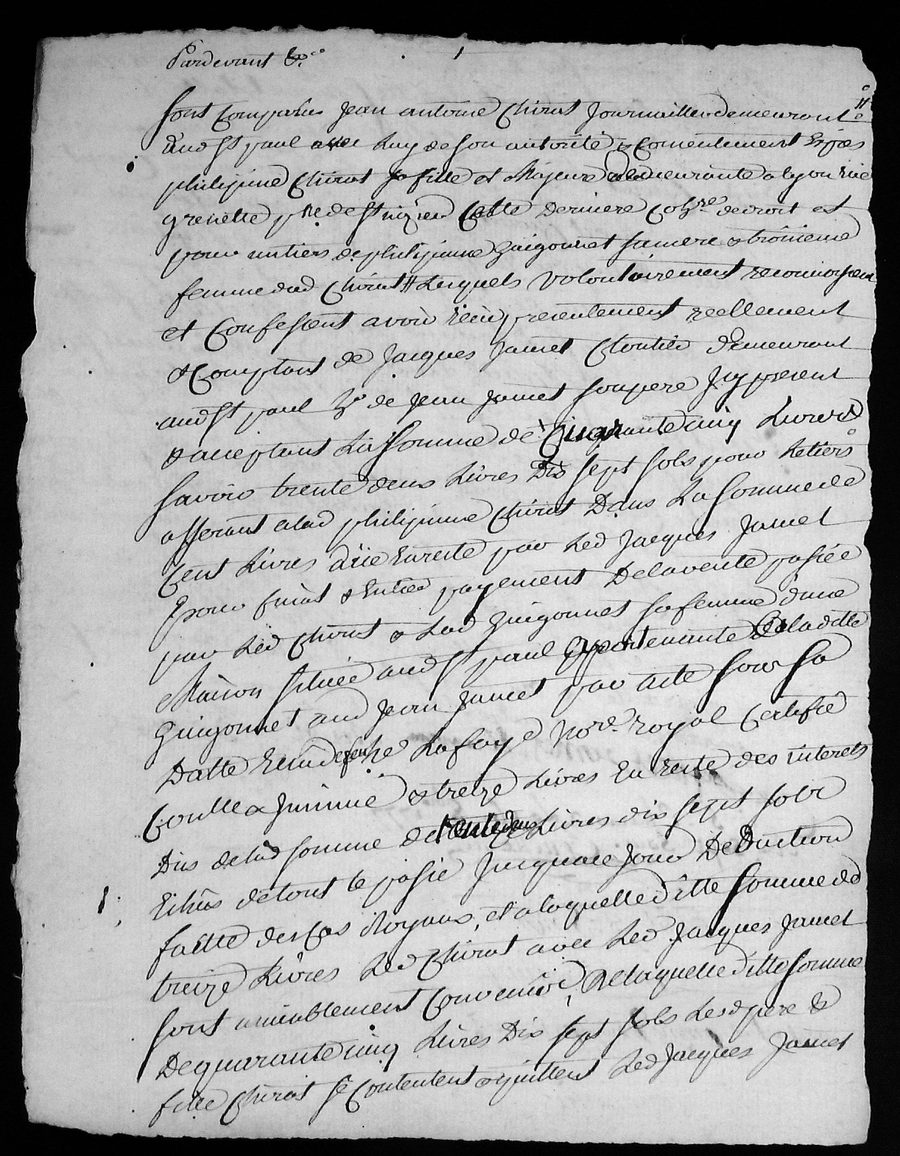 Pardevant &c.
sont Comparus Jean antoine Chirat Journaillier demeurant
aud St paul avec Luy de son autorité & Consentement Expres
philipine Chirat sa fille et Majeure demeurante a lyon Rüe
grenette psse de St nizier Cette Derniere Cohre de droit et
pour un tiers de philipine Guigonnet sa mere & troisieme
femme dud Chirat Lesquels Volontairement reconnoissent
et Confessent avoir Reçu presentement reellement
& Comptant de Jacques Jamet Cloutier demeurant
aud St paul hr de Jean Jamet son pere Icy present
& acceptant La Somme de quarante cinq Livres
savoir trente deux Livres Dix sept sols pour Le tiers
afferant a lad philipine Chirat Dans La Somme de
Cent Livres düe En reste par Led Jacques Jamet
pour final & Entier payement De la vente passée
par Led Chirat & Lad Guigonnet sa femme d'une
Maison située aud St paul appartenante a la ditte
Guigonnet aud Jean Jamet par acte sous sa
Datte Reçu de feu Me Lafaye Nore royal Certifié
Controllé & Insinué & treize Livres En reste des interets
Dus de lad somme de trente deux Livres dix sept sols
Echus de tout le passé Jusqu'a ce Jour Deduction
faitte des Cas Royaux, et a laquelle ditte somme de
treize Livres Led Chirat avec Led Jacques Jamet
sont amiablement Convenus, De laquelle ditte somme
De quarante cinq Livres Dix sept sols Lesd pere &
fille Chirat se Contentent & quittent Led Jacques Jamet